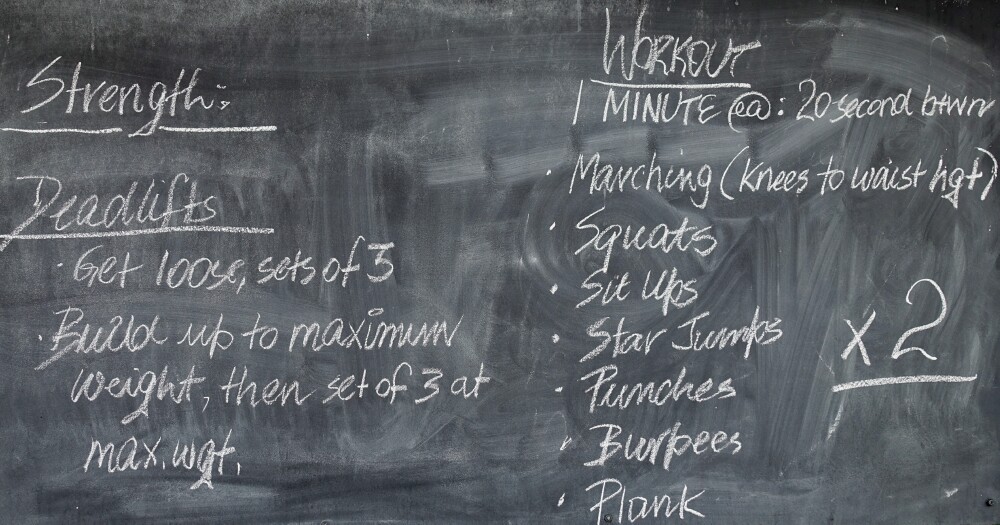 Strength:
Deadlifts
· Get loose, sets of 3
· Build up to maximum
weight, then set of 3 at
max. wgt.
WORKOUT
1 MINUTE ea: 20 second btwn
· Marching (knees to waist hgt)
· Squats
· Sit Ups
· Star Jumps
· Punches
· Burpees
· Plank
x 2